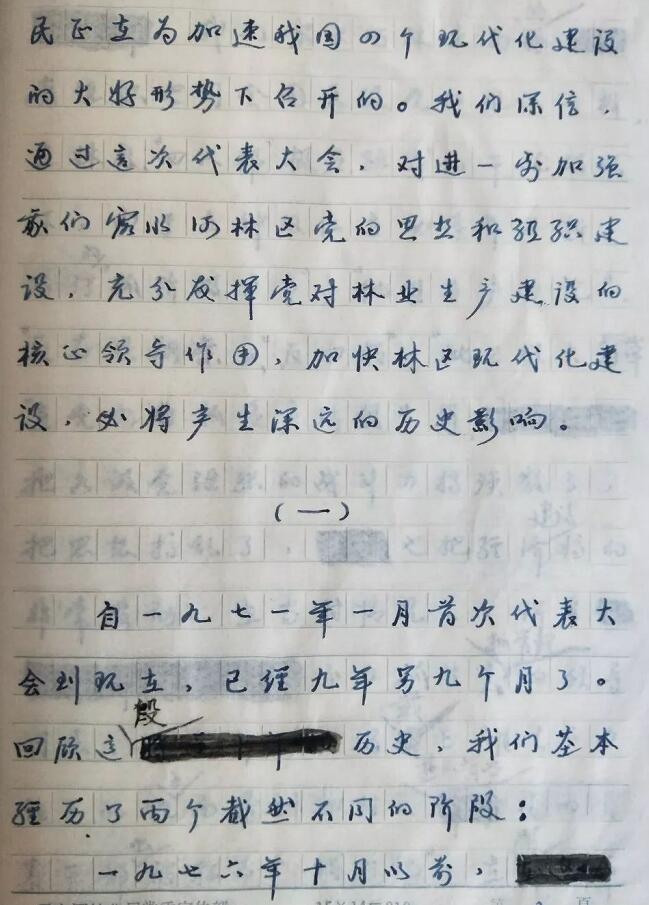 民正在为加速我国四个现代化建设
的大好形势下召开的。我们深信，
通过这次代表大会，对进一步加强
我们 林区党的思想和组织建
设，充分发挥党对林业生产建设的
核心领导作用，加快林区现代化建
设，必将产生深远的历史影响。
（一）
自一九七一年一月首次代表大
会到现在，已经九年另九个月了。
段
回顾这 历史，我们基本
经历了两个截然不同的阶段：
一九七六年十月以前，